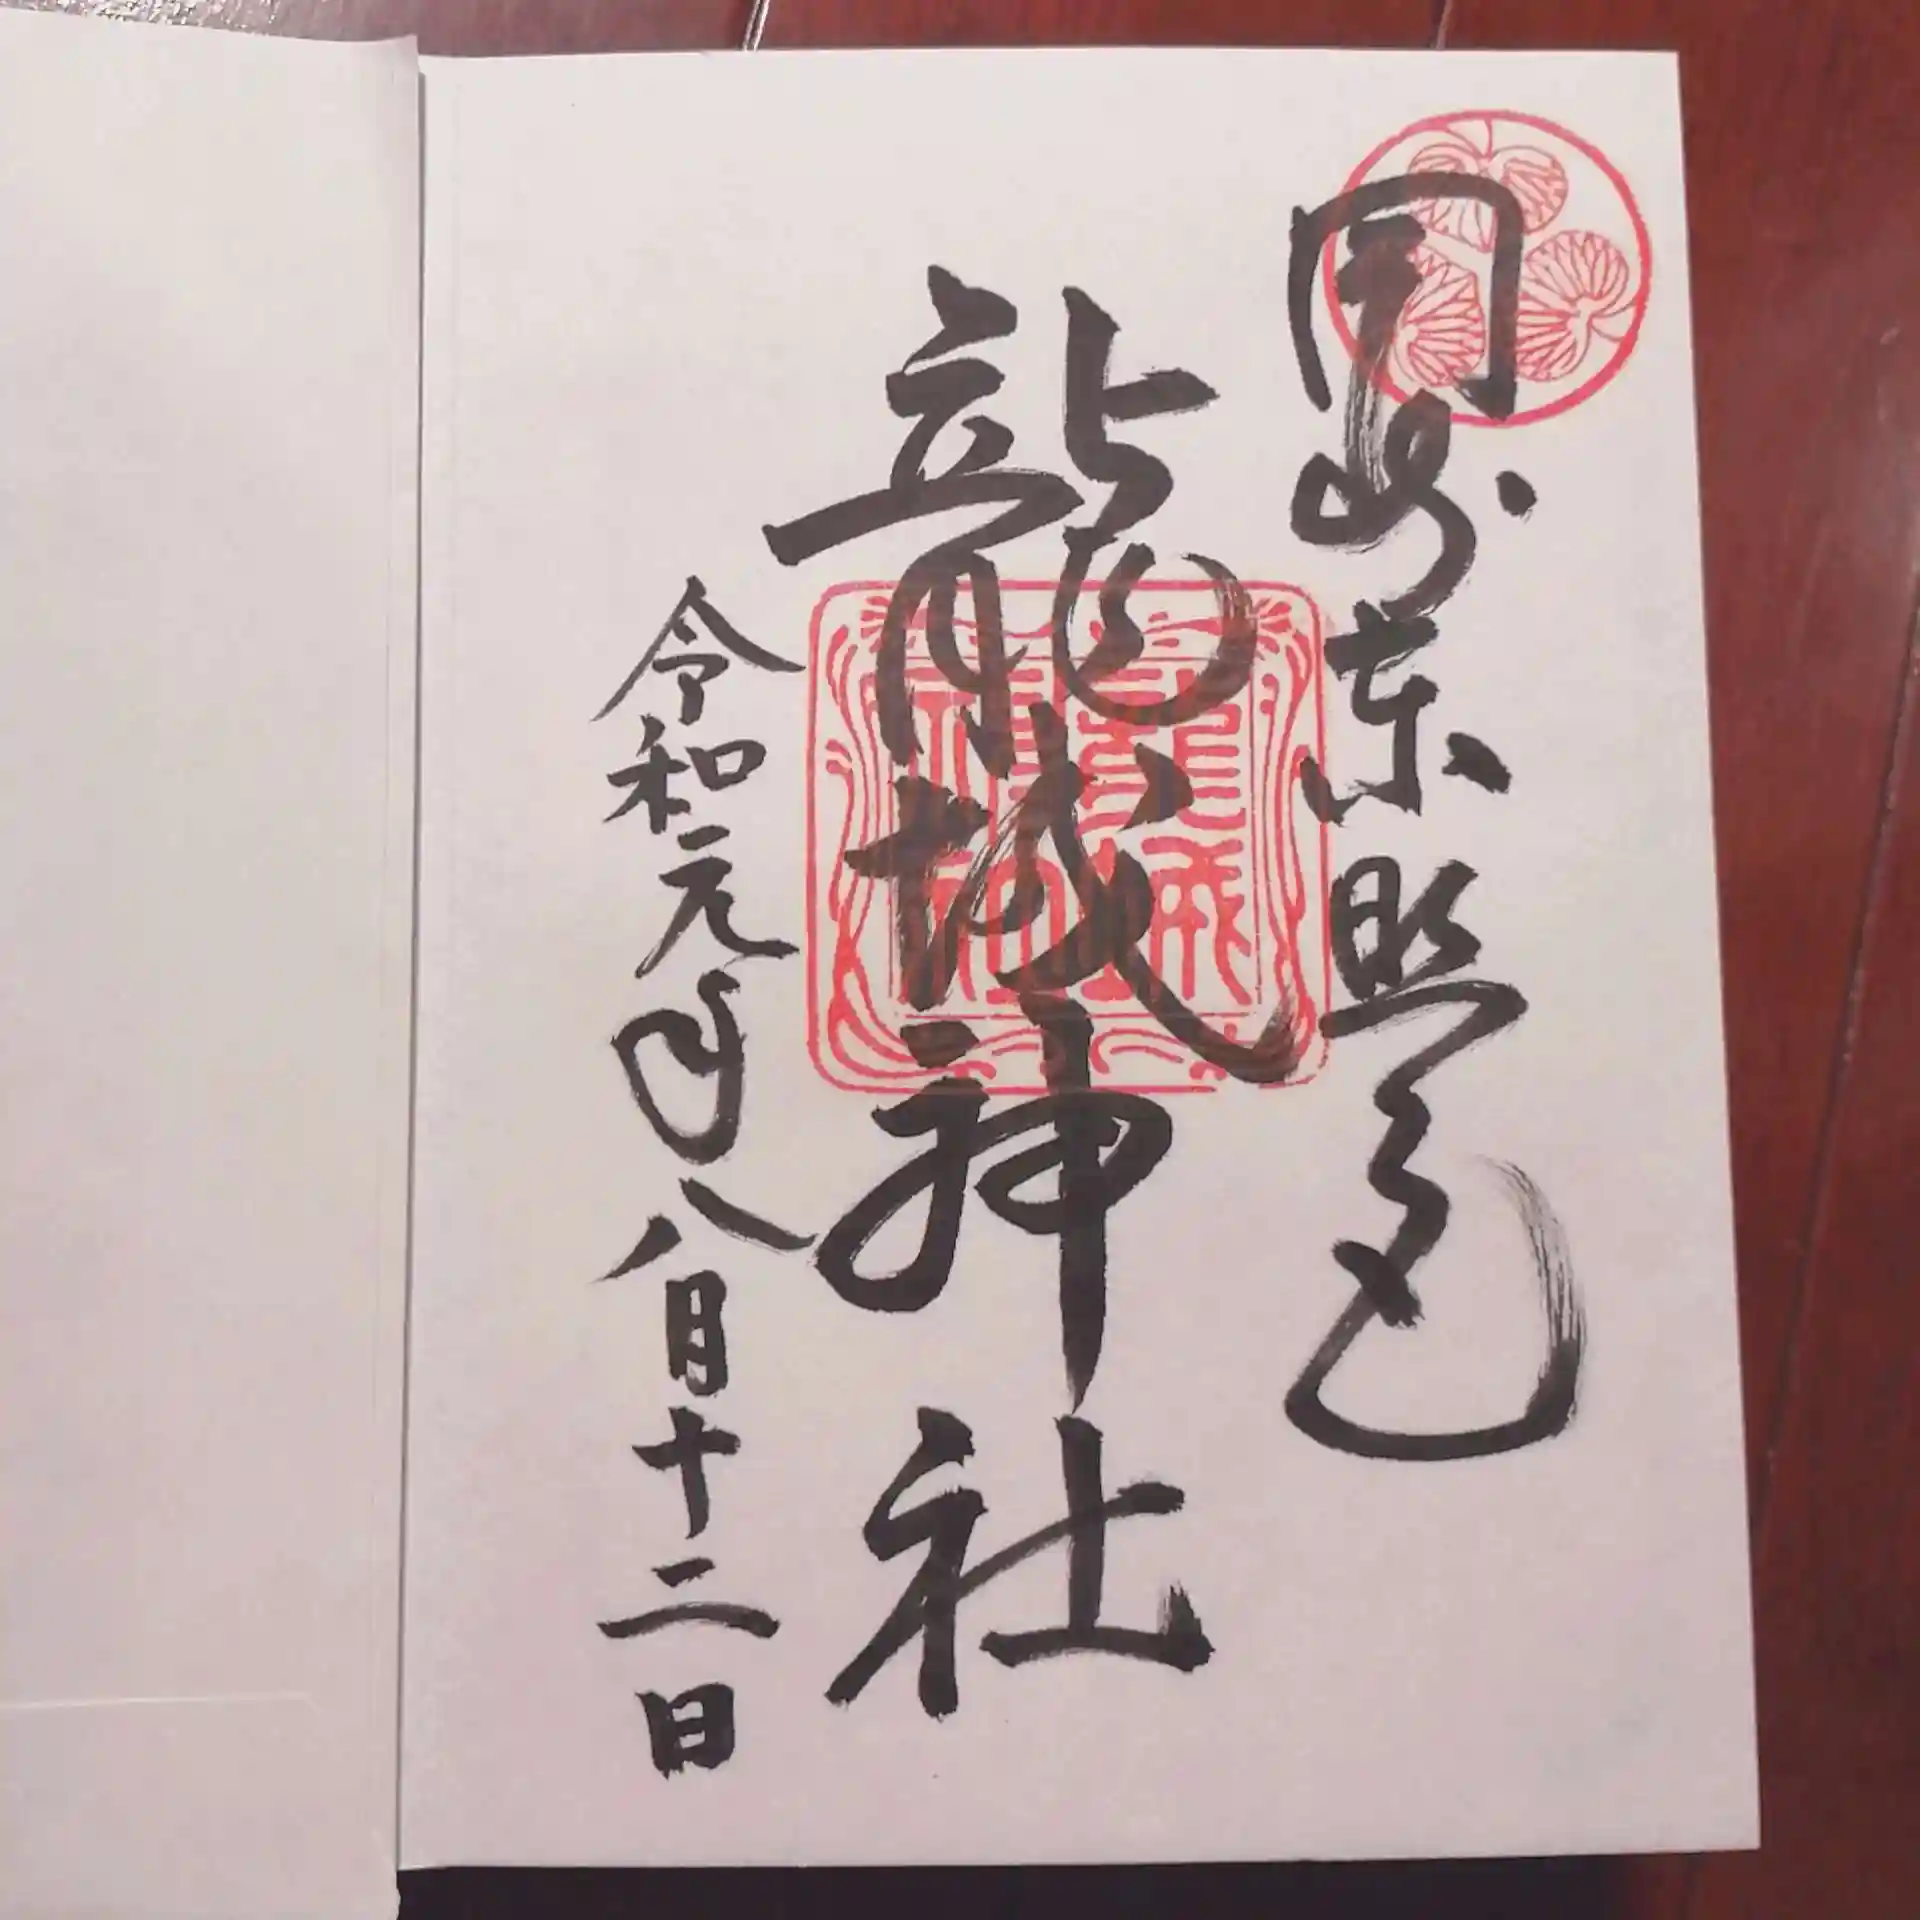 岡崎東照宮
龍城神社
令和元年八月十二日
龍城
神社